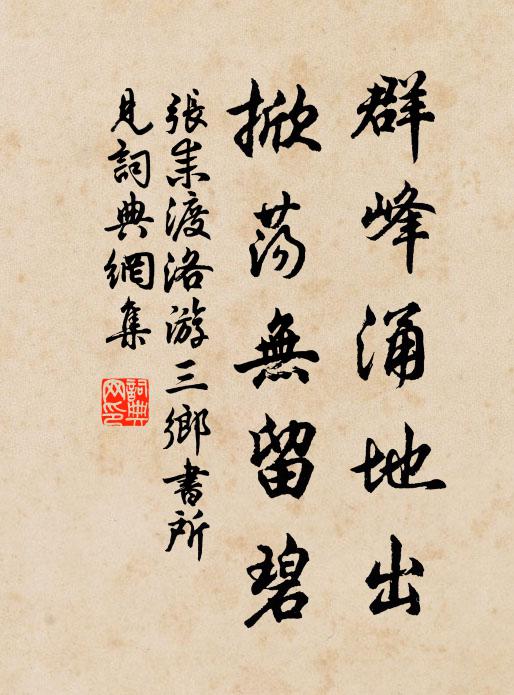 群峰涌地出
掀荡無留碧
張耒渡洛游三鄉書所
見詞典網集
詞典
网印